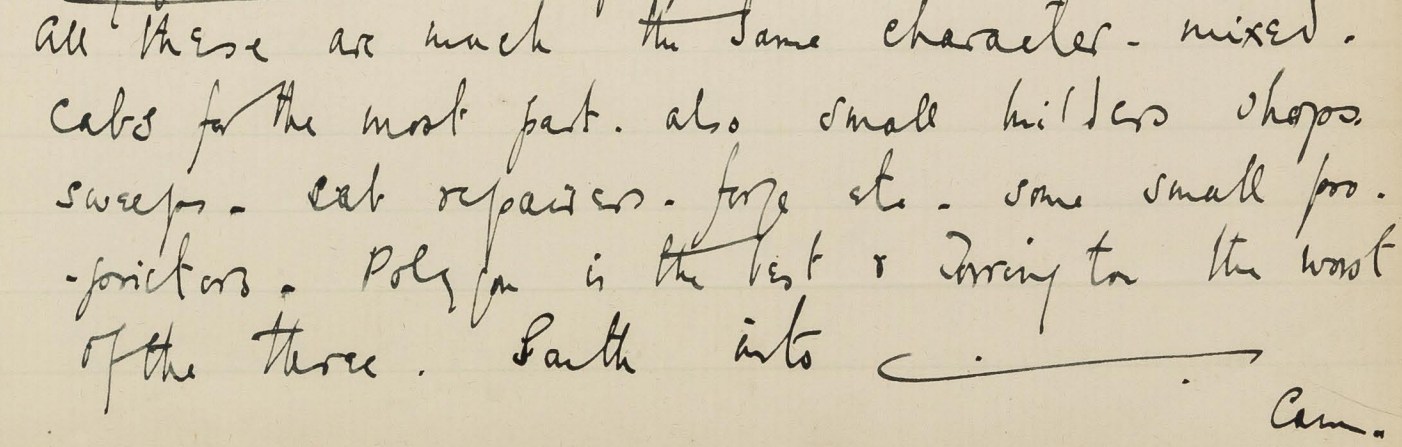 All these are much the same character - mixed.
cabs for the most part. also small builders shops.
sweeps - cab repairers - forge etc - some small pro-
-prietors. Polygon is the best & Torrington the worst
of the three. South into
Cam.